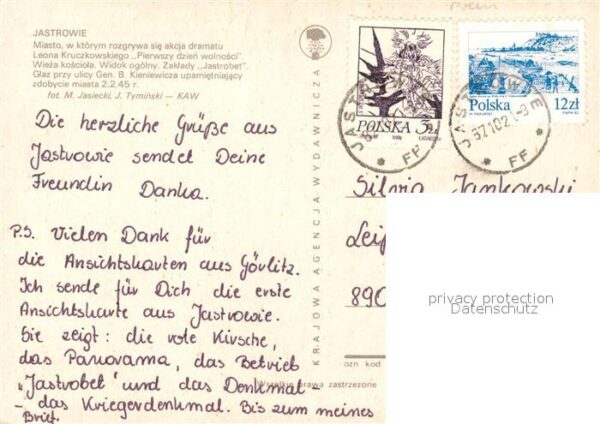 JASTROWIE
Miasto, w którym rozgrywa się akcja dramatu
Leona Kruczkowskiego „Pierwszy dzień wolności”.
Wieża kościoła. Widok ogólny. Zakłady „Jastrobet”.
Głaz przy ulicy Gen. B. Kieniewicza upamiętniający
zdobycie miasta 2.2.45 r.
fot. M. Jasiecki, J. Tymiński — KAW
Die herzliche Grüße aus
Jastrowie sendet Deine
Freundin Danka.
P.S. Vielen Dank für
die Ansichtskarten aus Görlitz.
Ich sende für Dich die erste
Ansichtskarte aus Jastrowie.
Sie zeigt: die rote Kirsche,
das Panorama, das Betrieb
„Jastrobet" und das Denkmal-
- das Kriegerdenkmal. Bis zum meines
Brief.
KRAJOWA AGENCJA WYDAWNICZA
POLSKA 3zł
Polska 12zł
JAST
FF
JAST WIE
FF
Silvia Jankowski
Leip
890
ozn kod
Wszelkie prawa zastrzeżone
privacy protection
Datenschutz